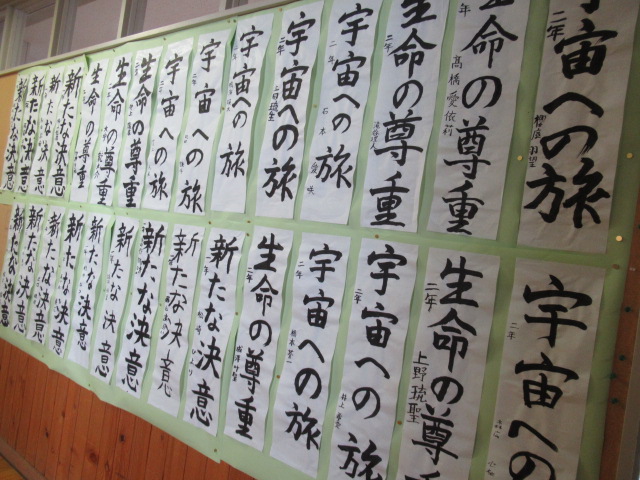 宇宙への旅
二年
生命の尊重
二年
高橋愛依莉
生命の尊重
二年
宇宙への旅
二年
石本愛咲
宇宙への旅
二年
宇宙への旅
宇宙への旅
宇宙への旅
生命の尊重
生命の尊重
生命の尊重
新たな決意
新たな決意
新たな決意
新たな決意
宇宙への
二年
生命の尊
二年
上野琉聖
宇宙への旅
二年
井上
宇宙への旅
二年
橋本
生命の尊重
二年
新たな決意
新たな決意
新たな決意
新たな決意
新たな決意
新たな決意
新たな決意
新たな決意
新たな決意